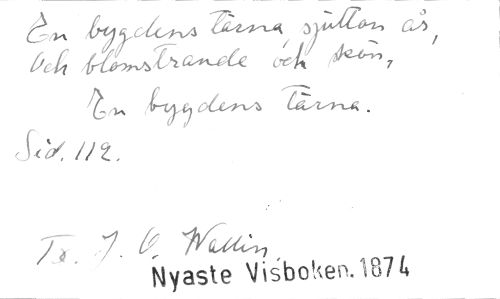 En bygdens tärna, sjutton år,
Och blomstrande och skön,
En bygdens tärna.
Sid. 112.
To. J. O. Wallin.
Nyaste Visboken. 1874